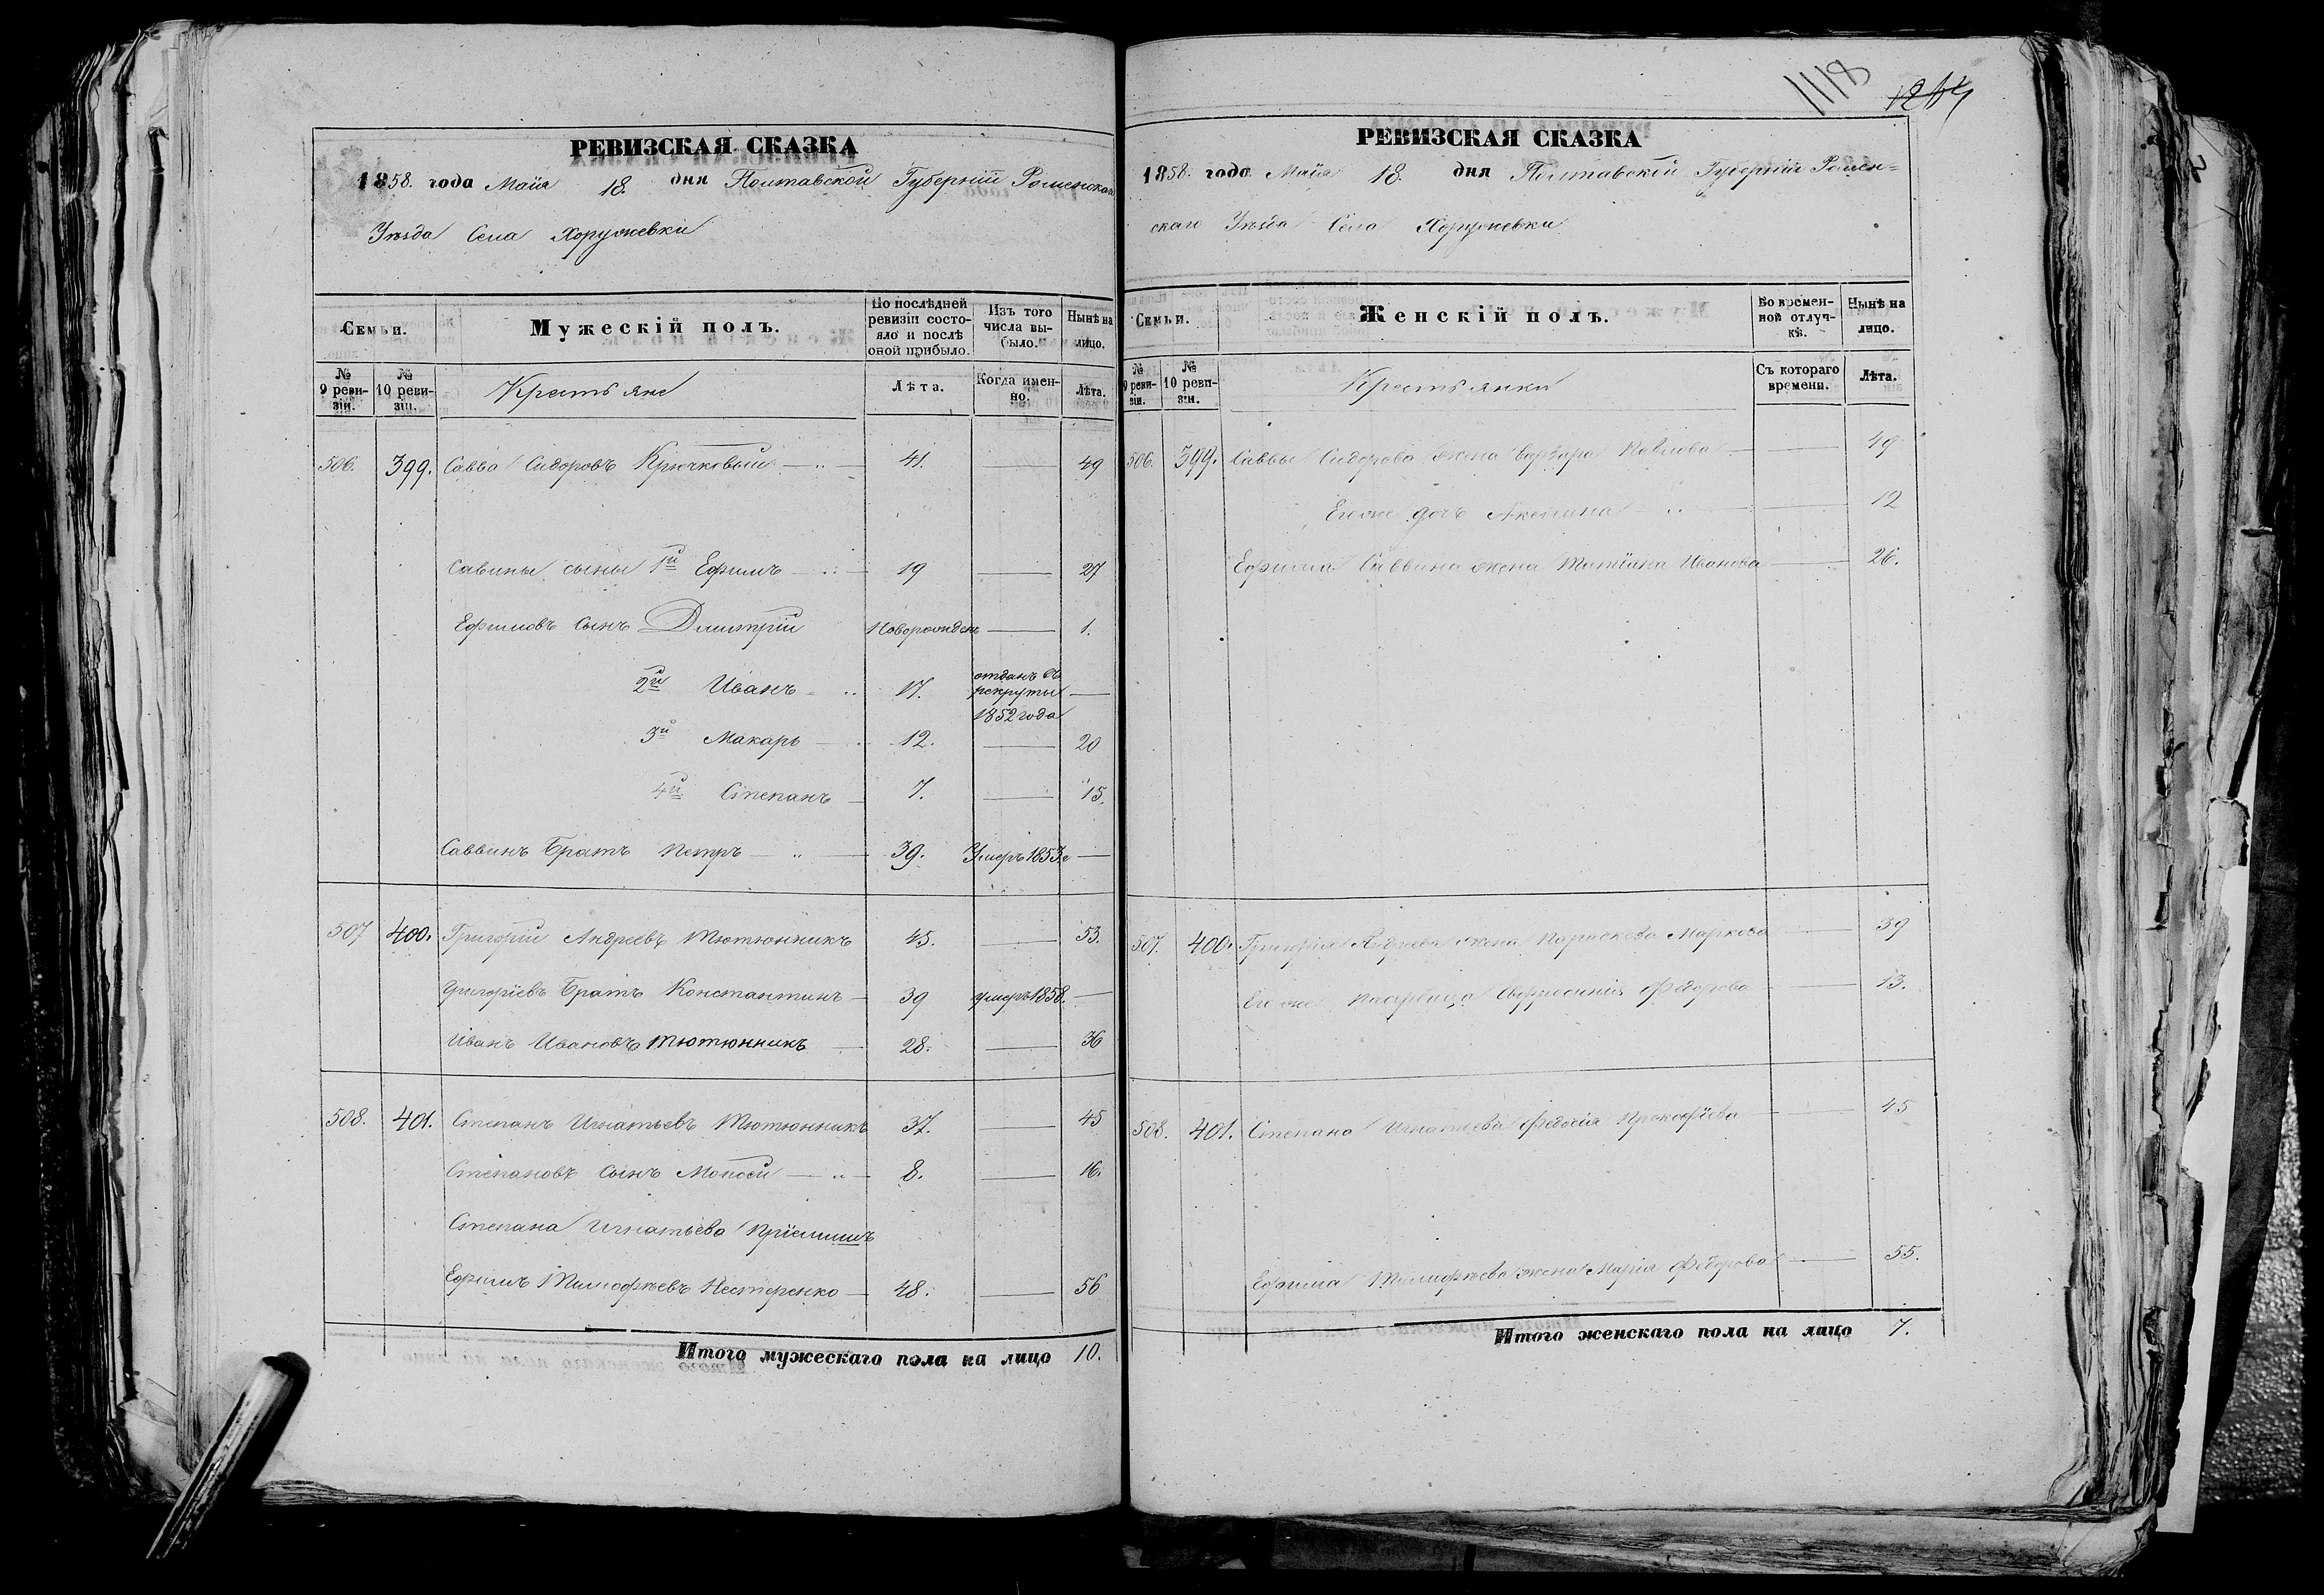 1118
РЕВИЗСКАЯ СКАЗКА
1858. года Маія 18. дня Полтавской Губерніи Роменскаго
Уѣзда Села Хоружевки
Семьи.
Мужескій полъ.
По послѣдней ревизіи состояло и послѣ оной прибыло.
Изъ того числа выбыло.
Нынѣ на лицо.
№ 9 ревизіи.
№ 10 ревизіи.
Крестьяне
Лѣта.
Когда именно.
Лѣта.
506. 399. Савва Сидоровъ Крючковый 41. 49
Савины сыны 1й Ефимъ 19 27
Ефимовъ сынъ Дмитрій Новорожденъ 1.
2й Иванъ 17. отданъ въ рекруты 1852 года
3й Макаръ 12. 20
4й Степанъ 7. 15.
Саввинъ Братъ Петръ 39. Умеръ 1853 г
507 400. Григорій Андреевъ Тютюнникъ 45. 53.
Григоріевъ Братъ Константинъ 39 умеръ 1858.
Иванъ Ивановъ Тютюнникъ 28. 36
508. 401. Степанъ Игнатьевъ Тютюнникъ 37. 45
Степановъ сынъ Мокосій 8. 16.
Степана Игнатьева пріемышъ
Ефимъ Тимофѣевъ Нестеренко 48. 56
Итого мужескаго пола на лицо 10.
РЕВИЗСКАЯ СКАЗКА
1858. года Маія 18. дня Полтавской Губерніи Ромен=
скаго Уѣзда Села Хоружевки
Семьи.
Женскій полъ.
Во временной отлучкѣ.
Нынѣ на лицо.
№ 9 ревизіи.
№ 10 ревизіи.
Крестьянки
Съ котораго времени.
Лѣта.
506. 399. Саввы Сидорова жена Варвара Павлова 49
Его же дочь Акелина 12
Ефима Саввина жена Татіяна Иванова 26.
507. 400. Григорія Андреева жена Параскева Маркова 39
Его же падчерица Евфросинія Федорова 13.
508. 401. Степана Игнатьева Федосія Прокофіева 45
Ефима Тимофѣева жена Марія Федорова 55.
Итого женскаго пола на лицо 7.